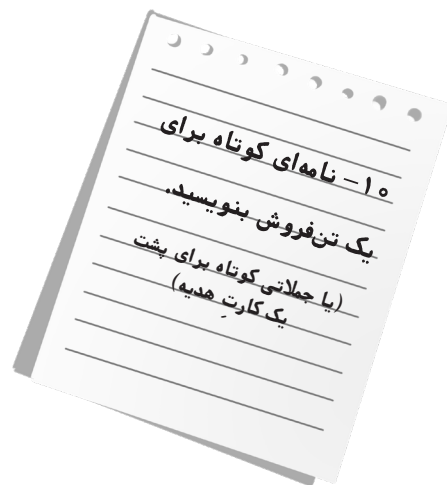 ۱۰- نامه‌ای کوتاه برای
یک تن‌فروش بنویسید.
(یا جملاتی کوتاه برای پشت
یک کارتِ هدیه)